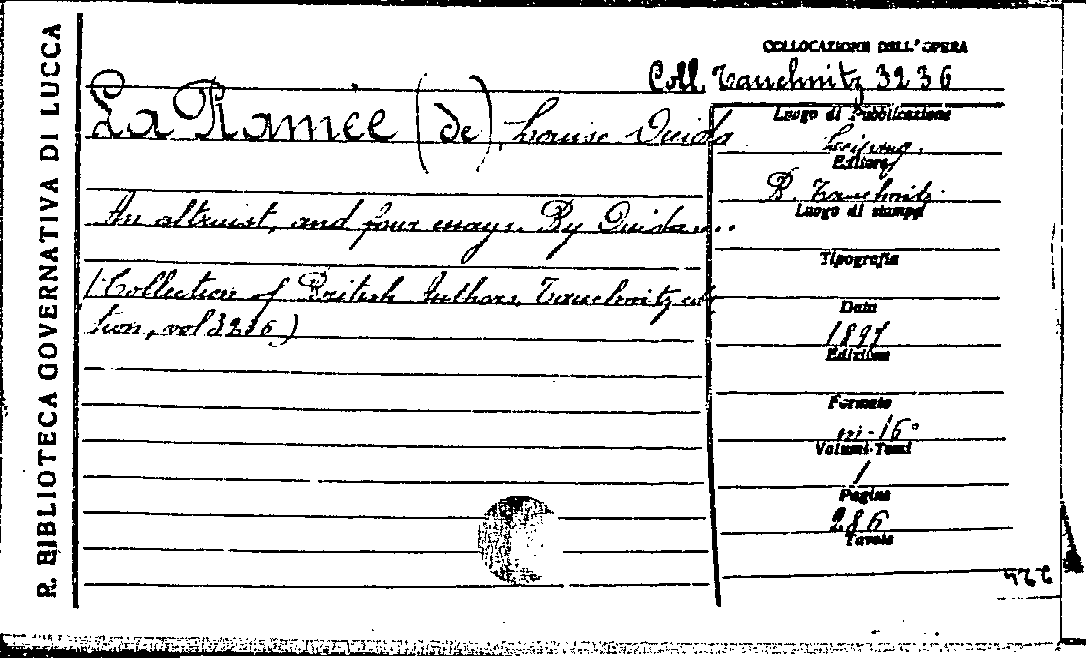 R. BIBLIOTECA GOVERNATIVA DI LUCCA
COLLOCAZIONE DELL'OPERA
Coll. Tauchnitz 3236
La Ramée (de), Louise Ouida
An altruist, and four essays. By Ouida...
(Collection of British Authors, Tauchnitz edi
tion, vol 3236)
Luogo di Pubblicazione
Leipzig.
Editore
B. Tauchnitz.
Luogo di stampa
Tipografia
Data
1897
Edizione
Formato
in-16°
Volumi-Tomi
1
Pagine
286
Tavole